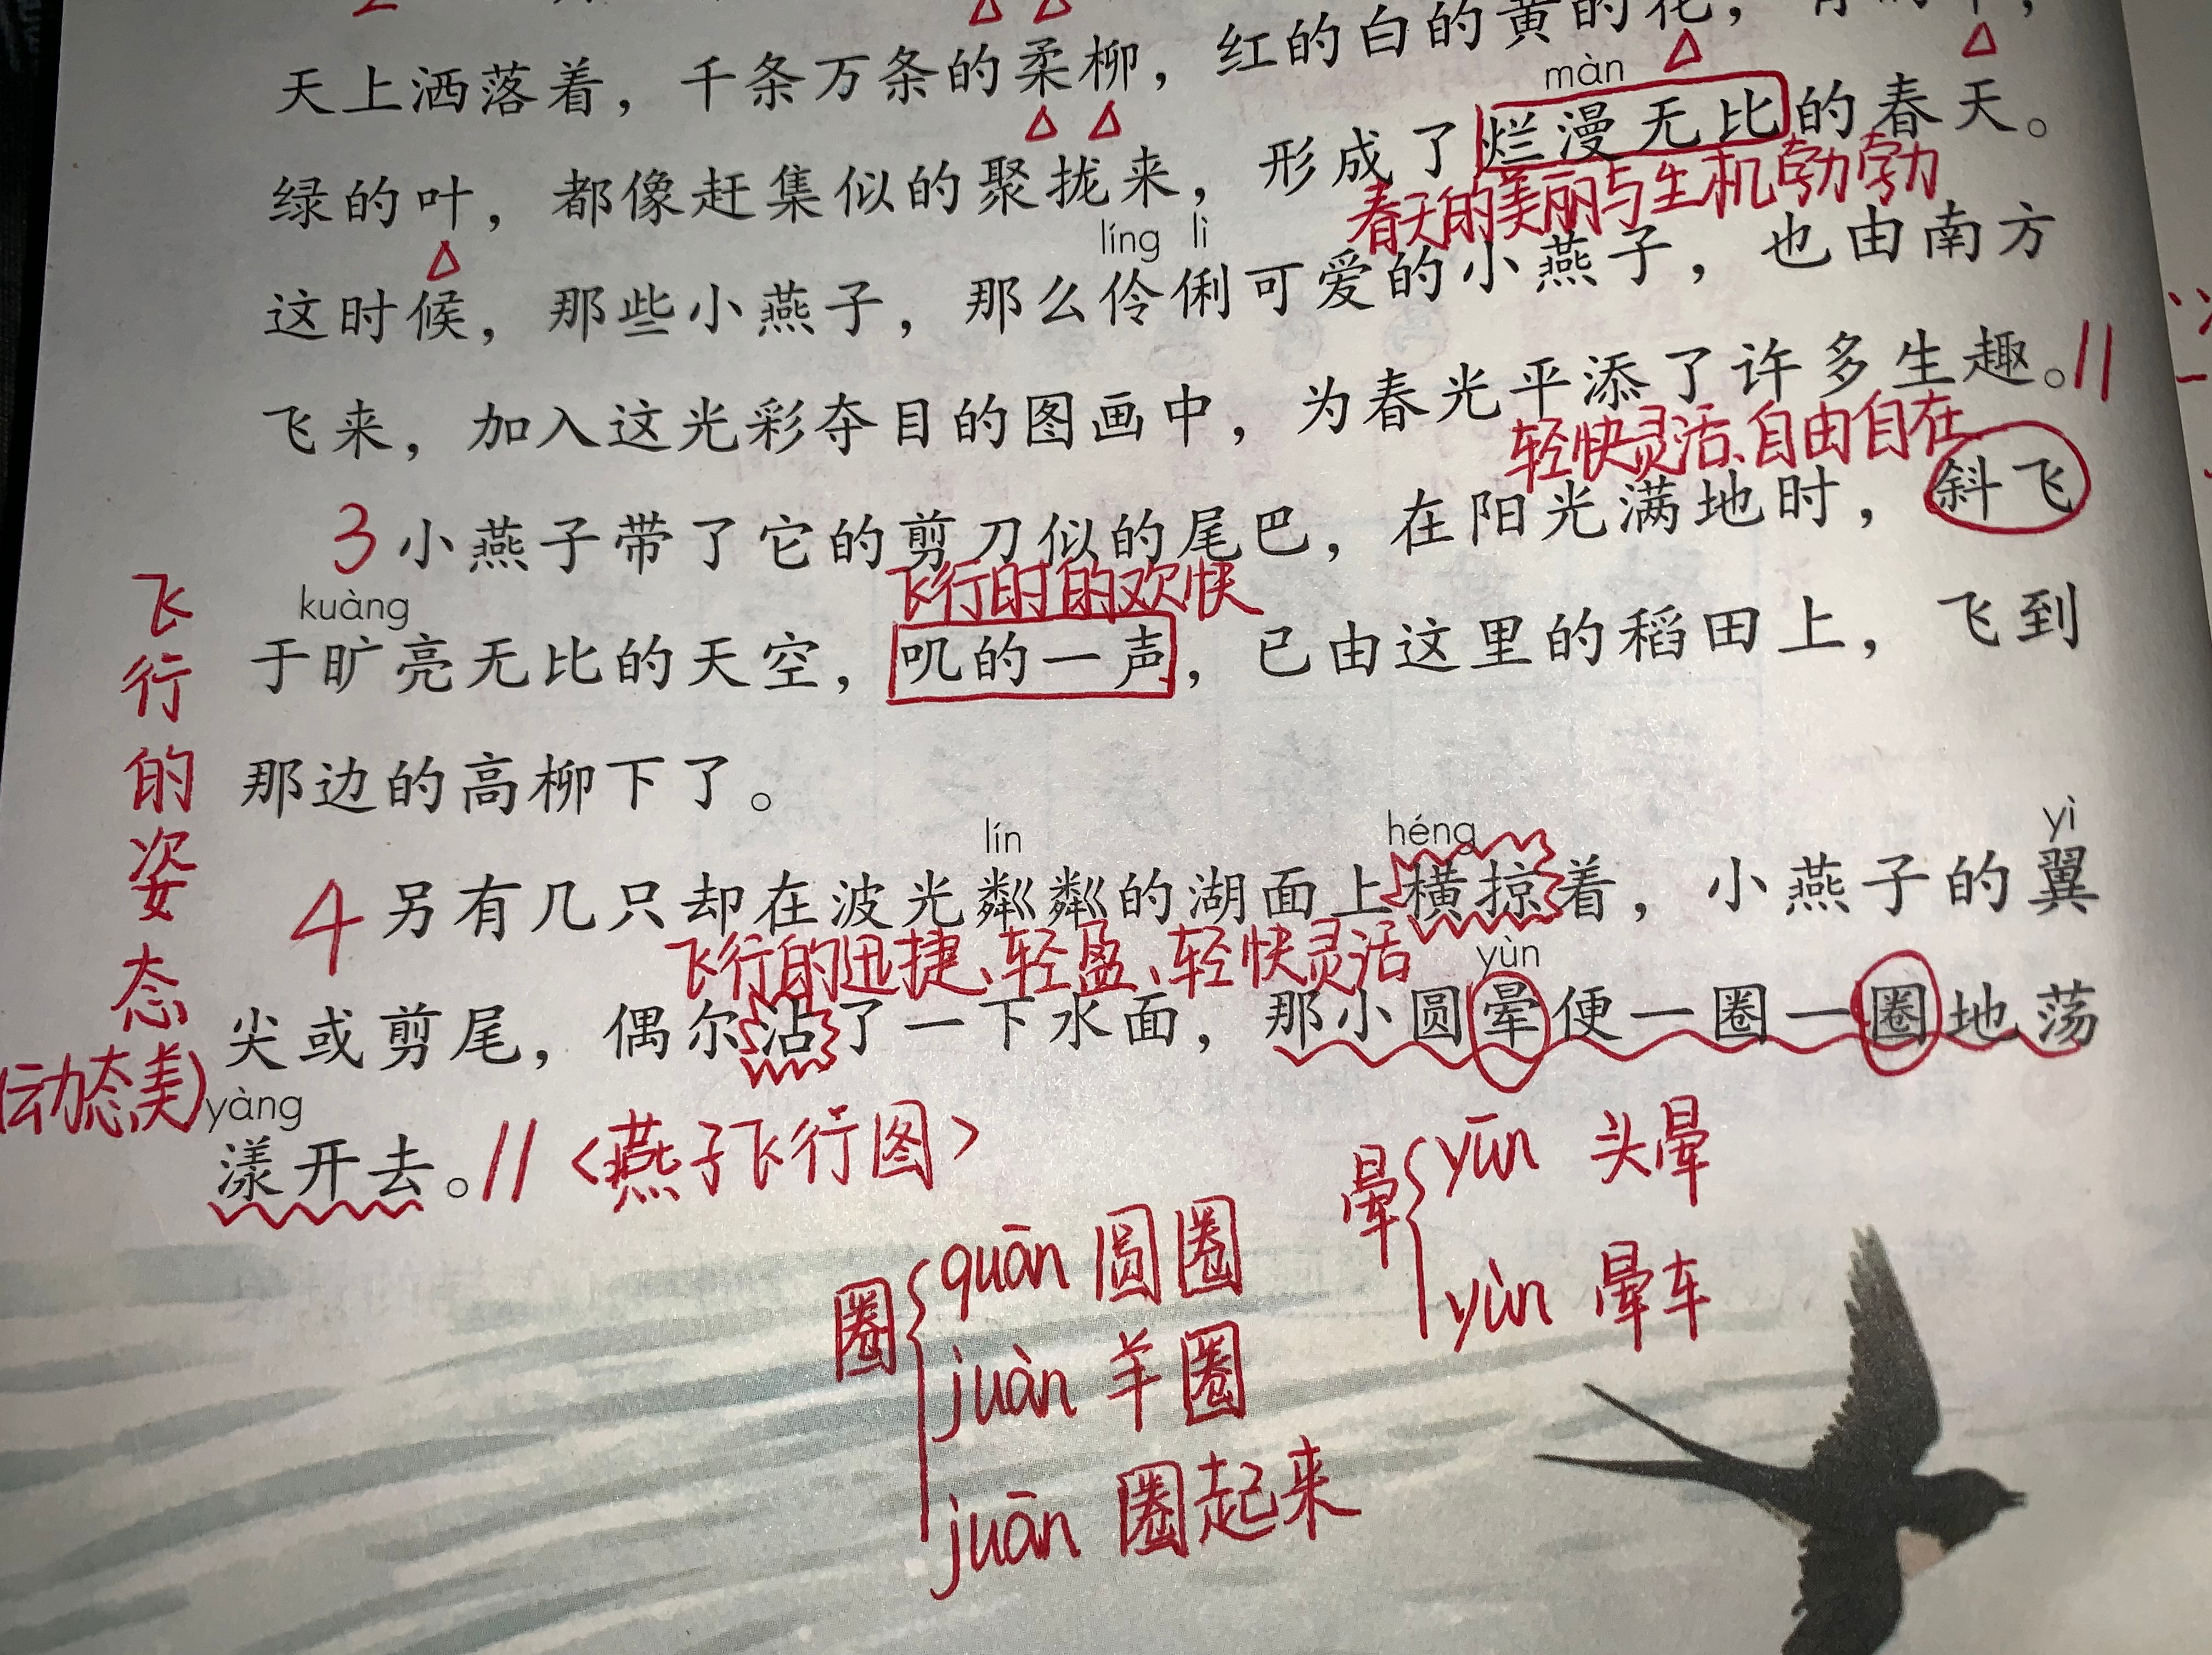 天上洒落着，千条万条的柔柳，红的白的黄的花，
màn
绿的叶，都像赶集似的聚拢来，形成了烂漫无比的春天。
春天的美丽与生机勃勃
líng lì
这时候，那些小燕子，那么伶俐可爱的小燕子，也由南方
飞来，加入这光彩夺目的图画中，为春光平添了许多生趣。//
轻快灵活、自由自在
3 小燕子带了它的剪刀似的尾巴，在阳光满地时，斜飞
飞行时的欢快
kuàng
于旷亮无比的天空，叽的一声，已由这里的稻田上，飞到
那边的高柳下了。
lín héng yì
4 另有几只却在波光粼粼的湖面上横掠着，小燕子的翼
飞行的迅捷、轻盈、轻快灵活
yùn
尖或剪尾，偶尔沾了一下水面，那小圆晕便一圈一圈地荡
yàng
漾开去。// <燕子飞行图>
飞行的姿态
(动态美)
晕 yūn 头晕
yùn 晕车
圈 quān 圆圈
juàn 羊圈
juān 圈起来